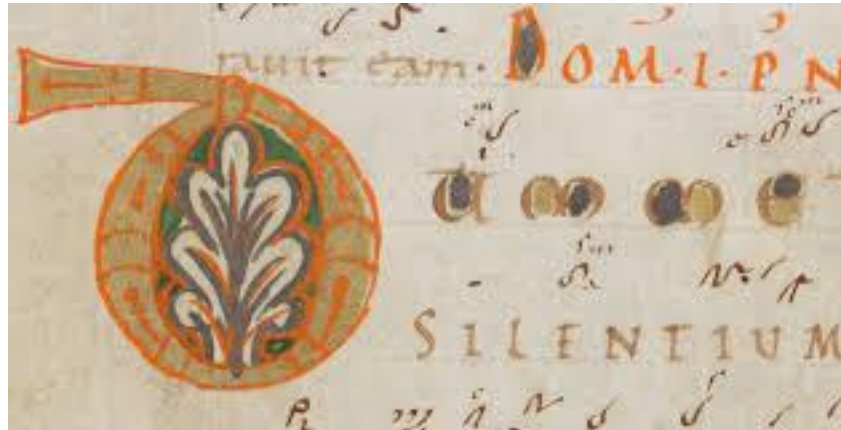 rauit eam· DOM·I·P N
DUM ME
SILENTIUM